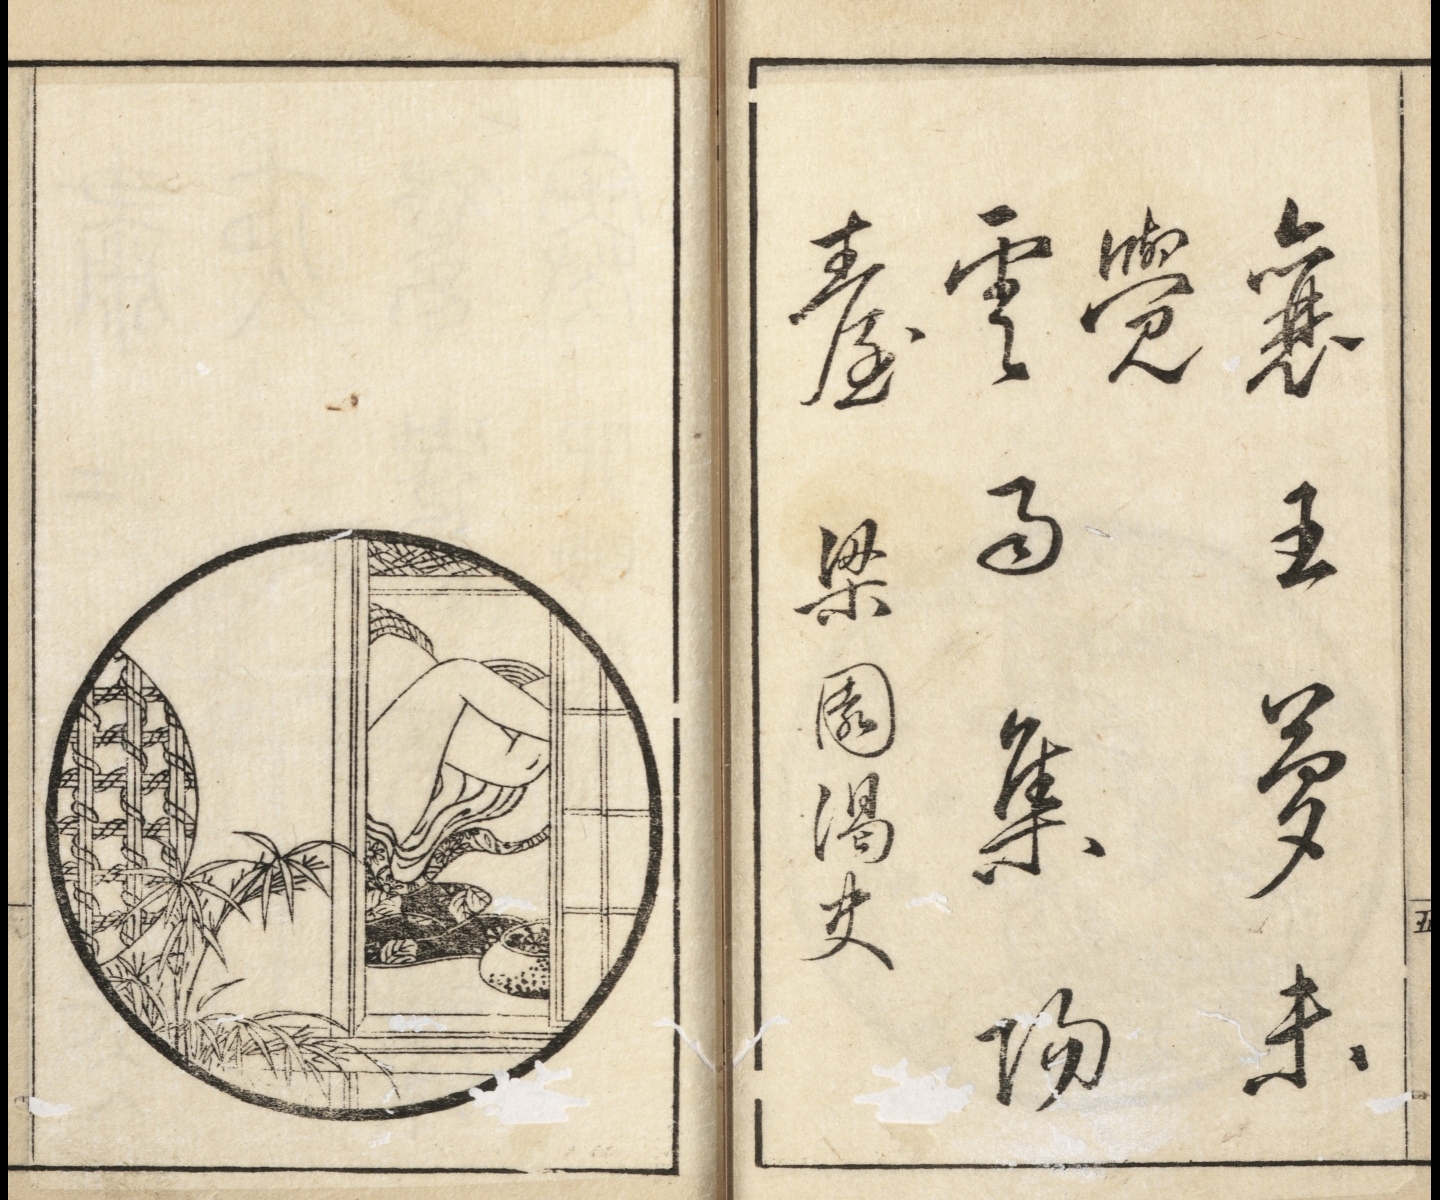 襄王夢未
覺
雲雨集陽
臺
梁園渇叟